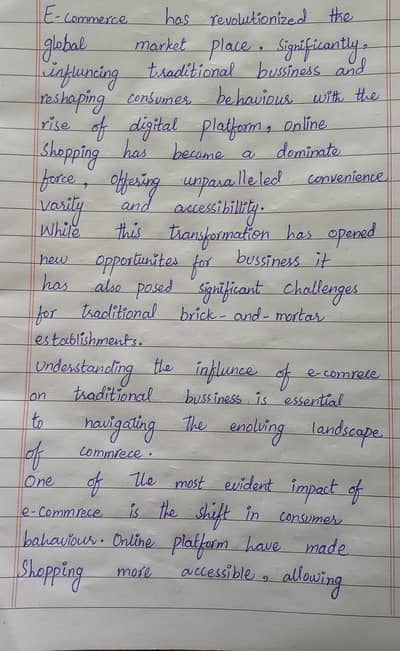 E-commerce has revolutionized the
global market place. Significantly,
influncing traditional bussiness and
reshaping consumer behaviour with the
rise of digital platform, online
Shopping has became a dominate
force, offering unparalleled convenience
varity and accessibillity.
While this transformation has opened
new opportunites for bussiness it
has also posed significant challenges
for traditional brick-and-mortar
establishments.
Understanding the influnce of e-comrece
on traditional bussiness is essential
to navigating the enolving landscape
of commrece.
One of the most evident impact of
e-commrece is the shift in consumer
bahaviour. Online platform have made
Shopping more accessible, allowing